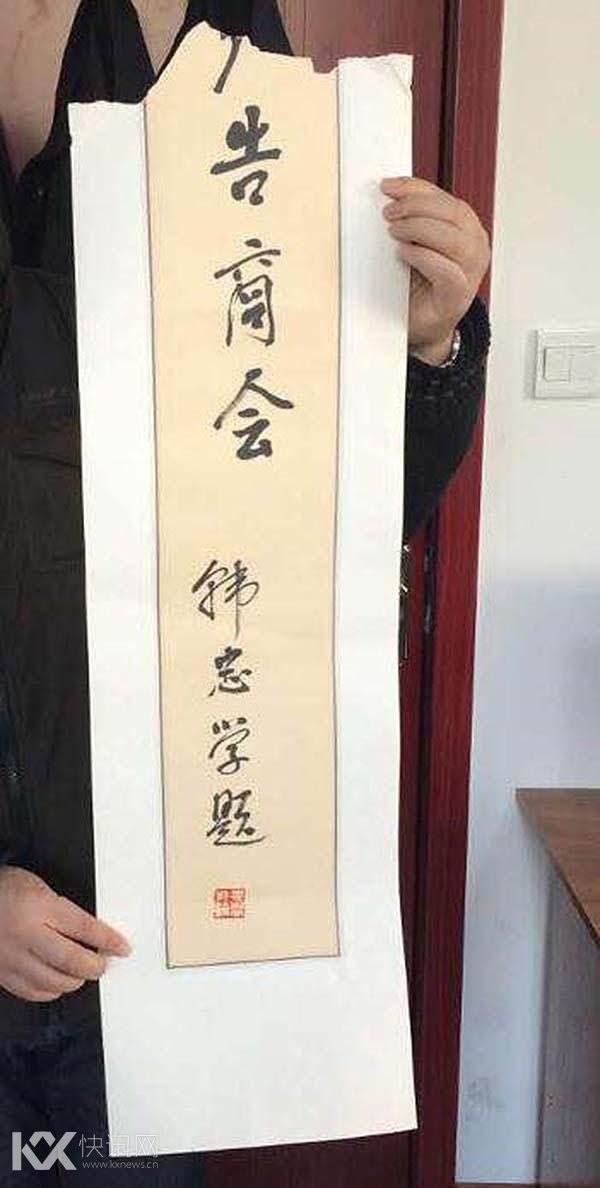 告商会
韩志学题
KX 快讯网
www.kxnews.cn